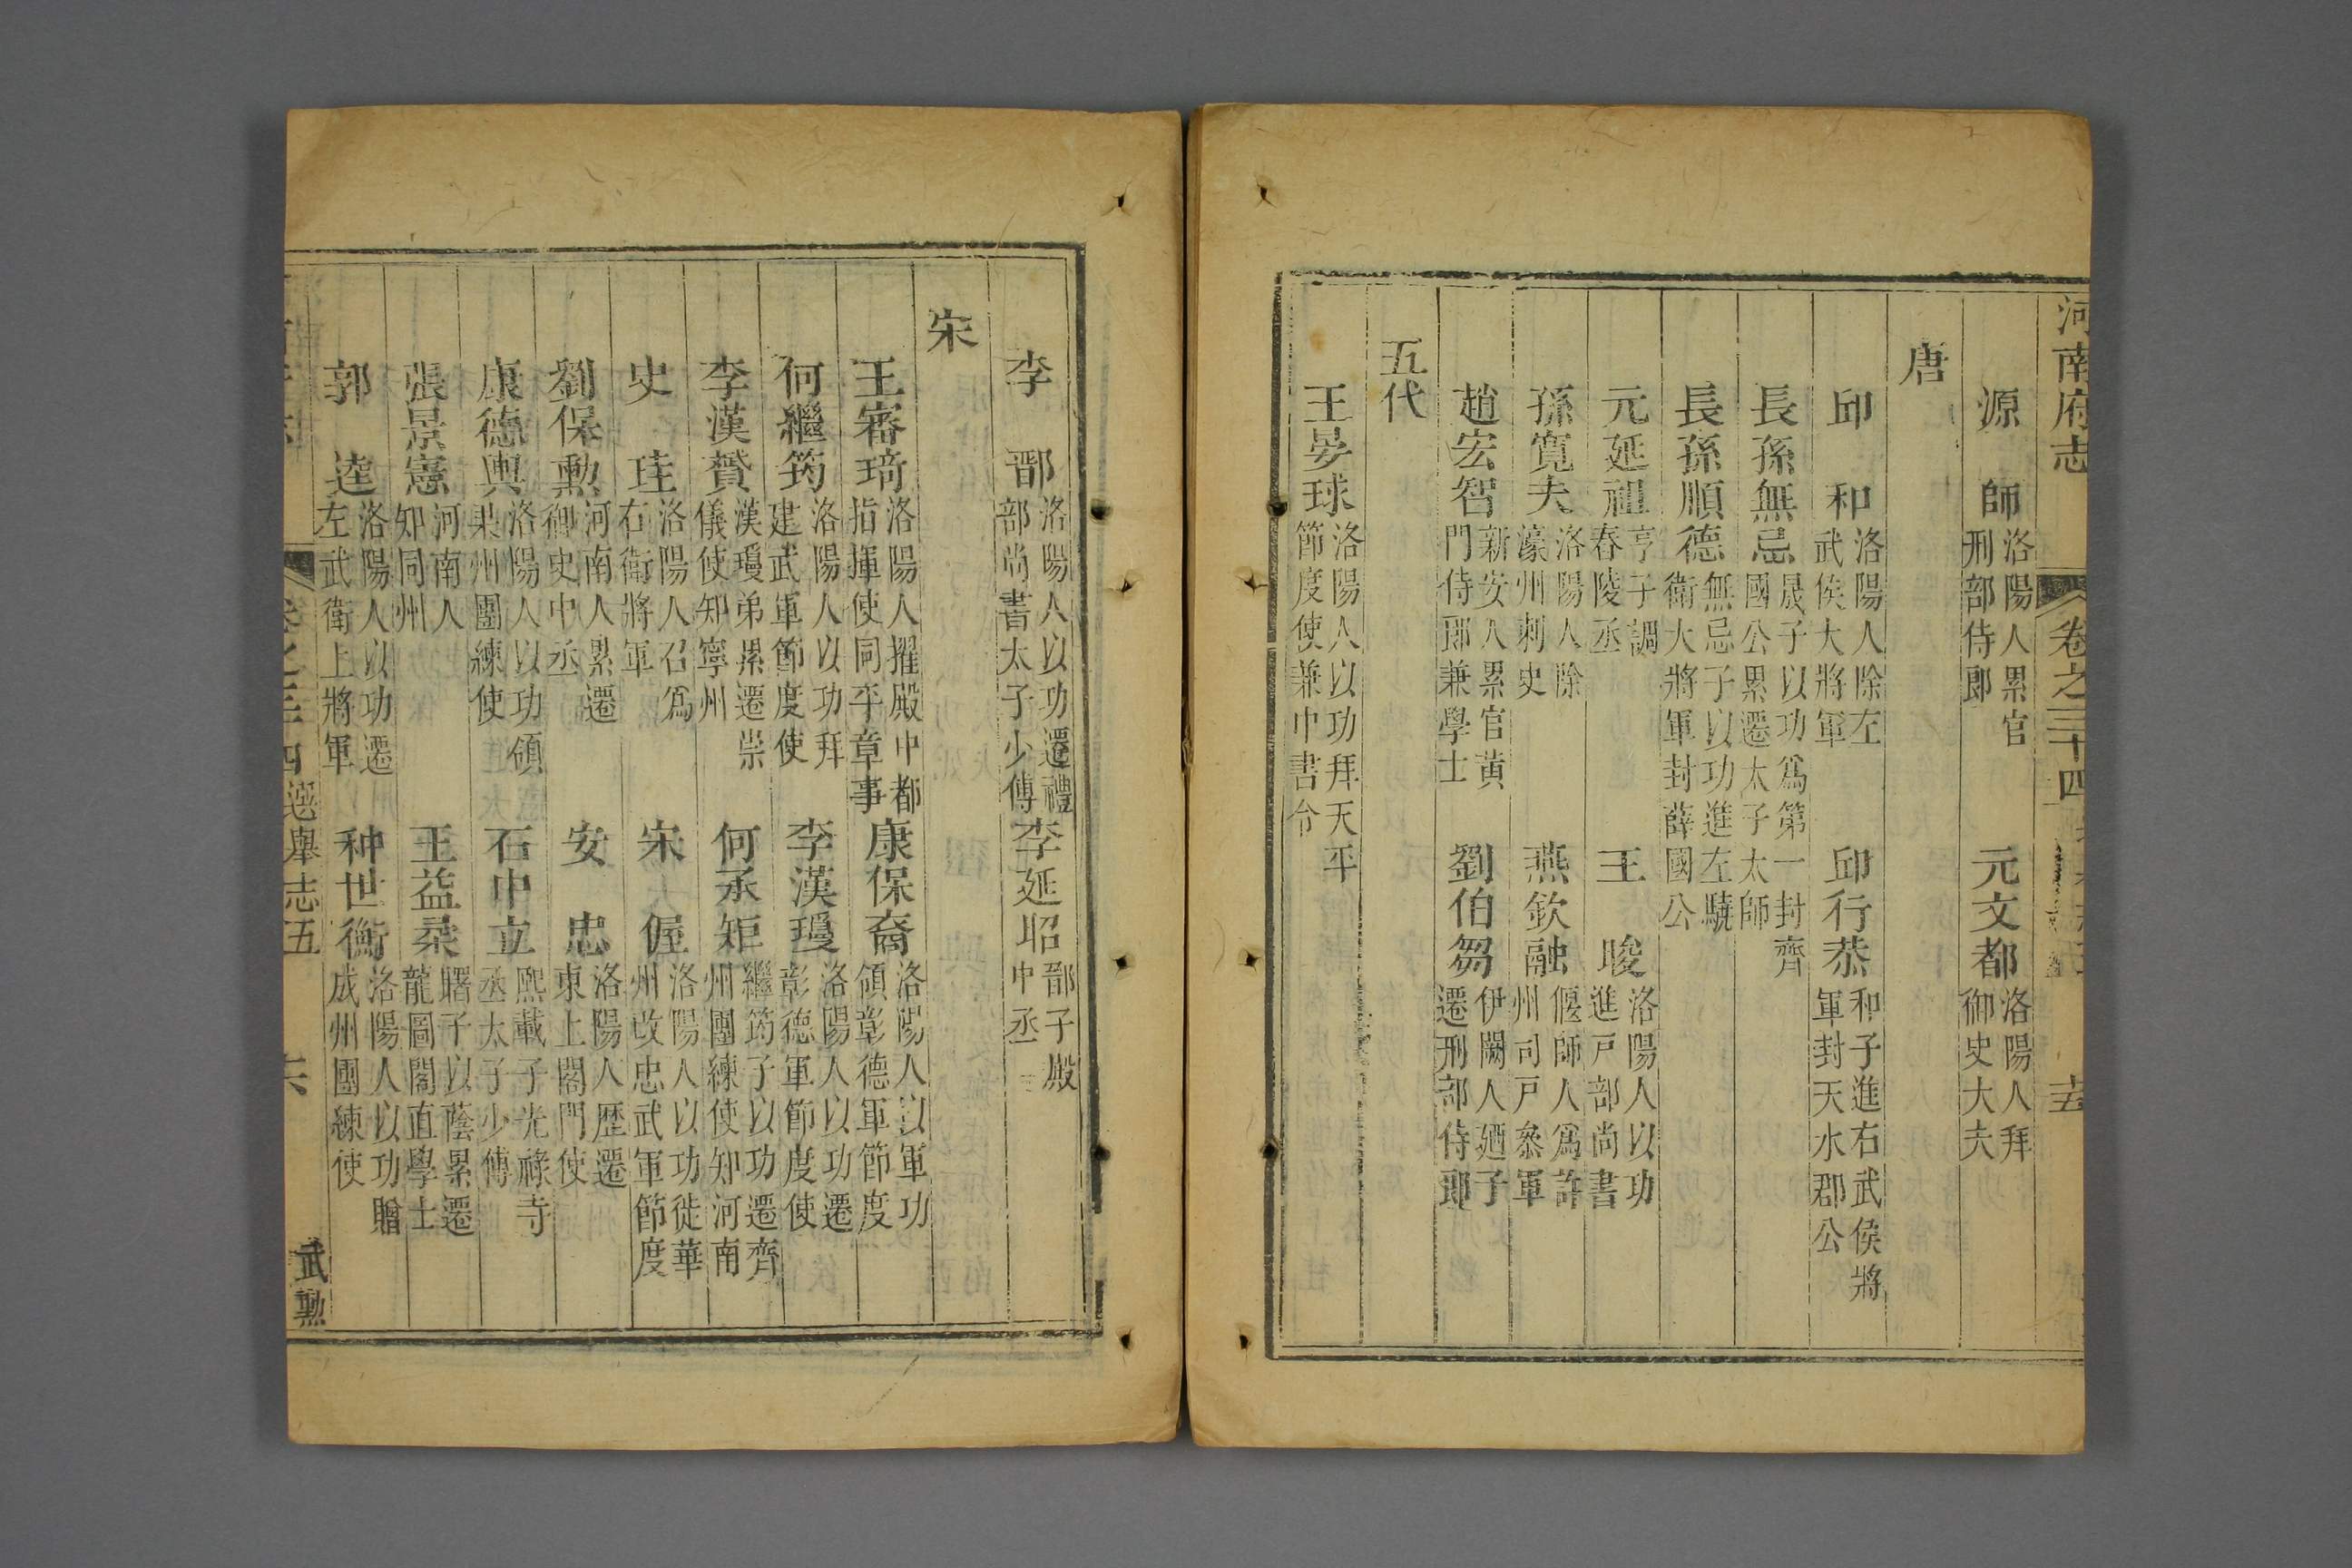 河南府志
卷之三十四
源師 洛陽人累官刑部侍郎
元文都 洛陽人拜御史大夫
唐
邱和 洛陽人除左武侯大將軍
邱行恭 和子進右武侯將軍封天水郡公
長孫無忌 晟子以功爲第一封齊國公累遷太子太師
長孫順德 無忌子以功進左驍衛大將軍封薛國公
元延祖 亨子調春陵丞
王晙 洛陽人以功進戸部尚書
孫寬夫 洛陽人除濠州刺史
燕欽融 偃師人爲許州司戸叅軍
趙宏智 新安人累官黄門侍郎兼學士
劉伯芻 伊闕人廼子遷刑部侍郎
五代
王晏球 洛陽人以功拜天平節度使兼中書令
李鄑 洛陽人以功遷禮部尚書太子少傅
李延昭 鄑子殿中丞
宋
王審琦 洛陽人擢殿中都指揮使同平章事
康保裔 洛陽人以軍功領彰德軍節度
何繼筠 洛陽人以功拜建武軍節度使
李漢瓊 洛陽人以功遷彰德軍節度使
李漢贇 漢瓊弟累遷崇儀使知寧州
何承矩 繼筠子以功遷齊州團練使知河南
史珪 洛陽人召爲右衛將軍
宋偓 洛陽人以功徙華州改忠武軍節度
劉保勲 河南人累遷御史中丞
安忠 洛陽人歴遷東上閤門使
康德輿 洛陽人以功領果州團練使
石中立 熙載子光祿寺丞太子少傅
張景憲 河南人知同州
王益柔 曙子以蔭累遷龍圖閣直學士
郭逵 洛陽人以功遷左武衛上將軍
种世衡 洛陽人以功贈成州團練使
四選舉志五
武勲